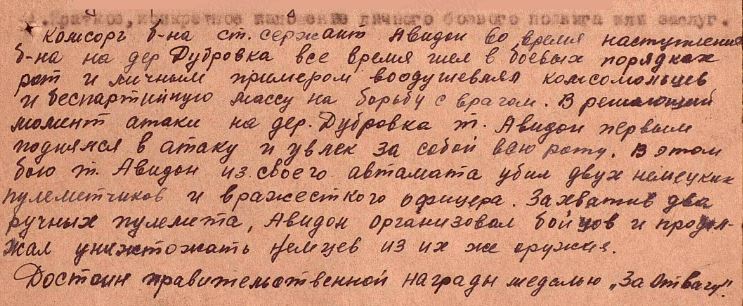 Краткое, конкретное изложение личного боевого подвига или заслуг.
Комсорг б-на ст. сержант Авидон во время наступления
б-на на дер Дубровка все время шел в боевых порядках
рот и личным примером воодушевлял комсомольцев
и беспартийную массу на борьбу с врагом. В решающий
момент атаки на дер. Дубровка т. Авидон первым
поднялся в атаку и увлек за собой всю роту. В этом
бою т. Авидон из своего автамата убил двух немецких
пулеметчиков и вражесткого офицера. Захватив два
ручных пулемета, Авидон организовал бойцов и продол-
жал уничтожать немцев из их же оружия.
Достоин правительственной награды медалью „За Отвагу".